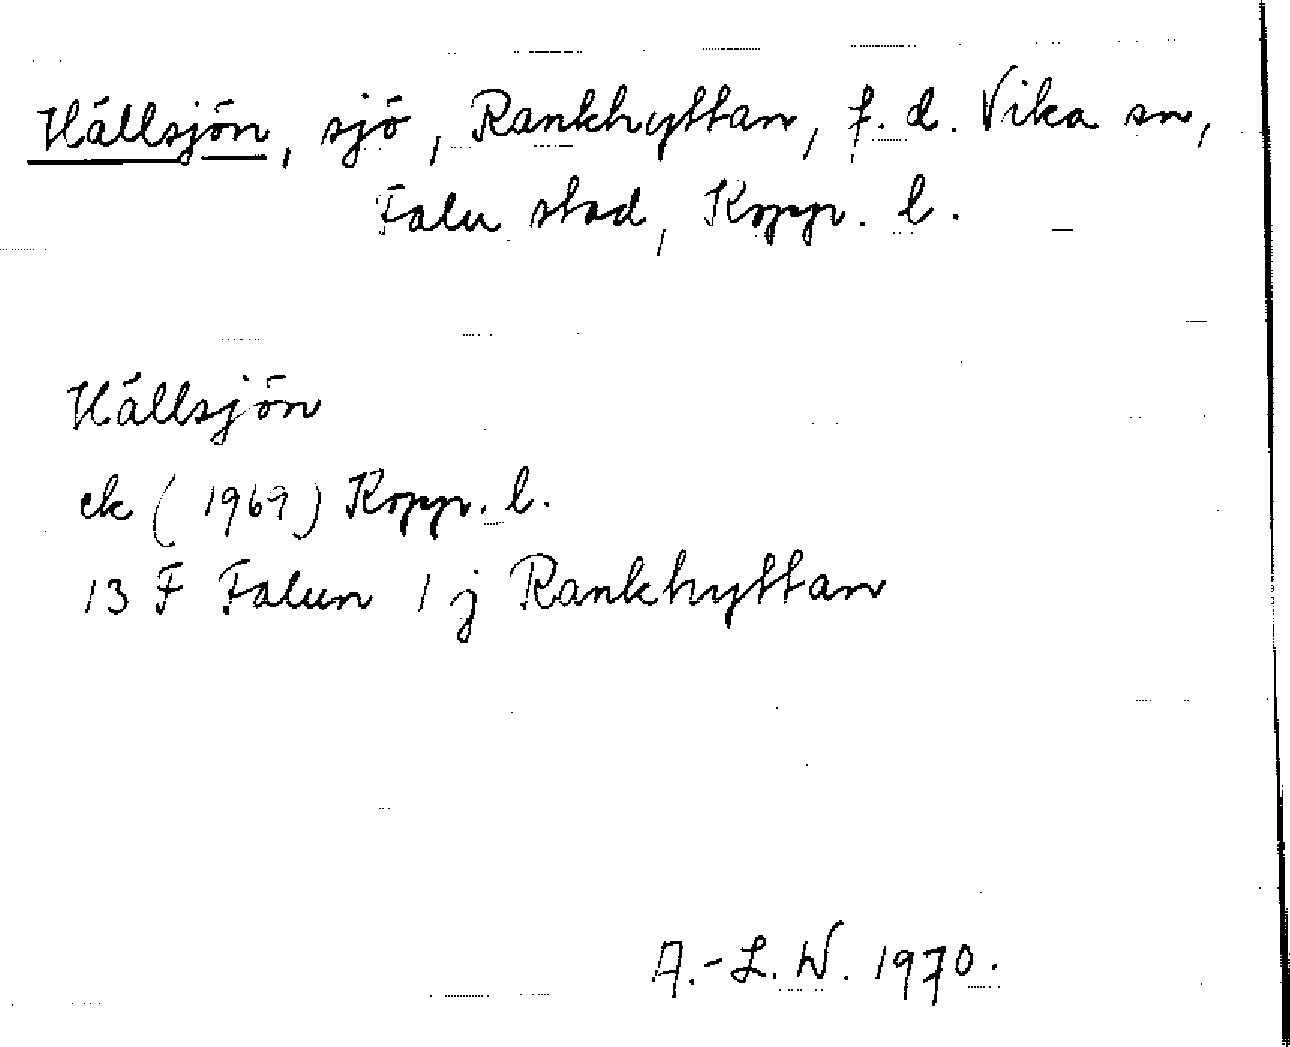 Hällsjön, sjö, Rankhyttan, f. d. Vika sn,
Falu stad, Kopp. l.
Hällsjön
ek (1969) Kopp. l.
13 F Falun 1 j Rankhyttan
A.-L. W. 1970.